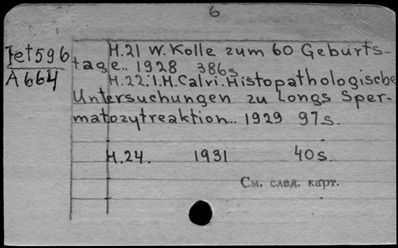 6
Jet596
A664
H.21 W. Kolle zum 60 Geburts-
tage.. 1928 386s
H.22.1.H.Calvi.Histopathologische
Untersuchungen zu Longs Sper-
matozytreaktion.. 1929 97s.
H.24. 1931 40s.
См. след. карт.